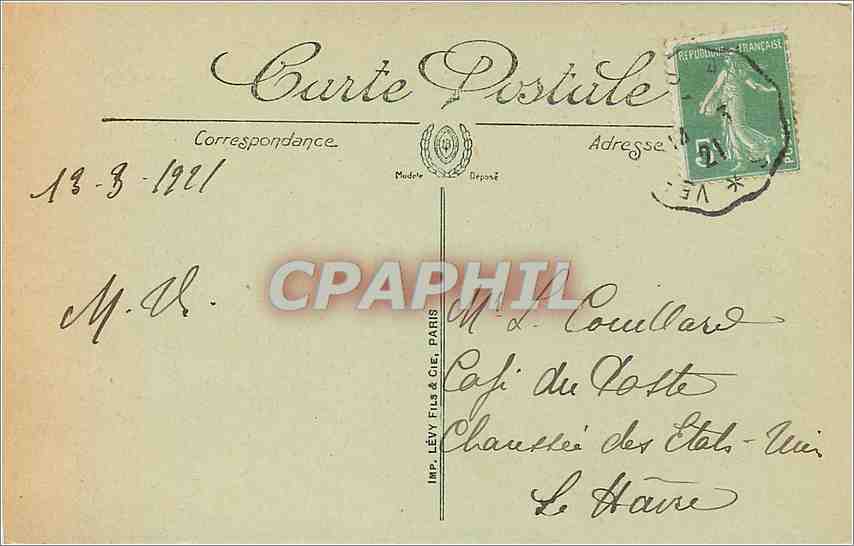 Carte Postale
RÉPUBLIQUE FRANÇAISE
Correspondance
Adresse
Modèle Déposé
13-3-1921
14 3
21
VE
CPAPHIL
M. V.
Mr L. Couillard
Café du Poste
Chaussée des Etats-Unis
Le Hâvre
IMP. LÉVY FILS & CIE, PARIS